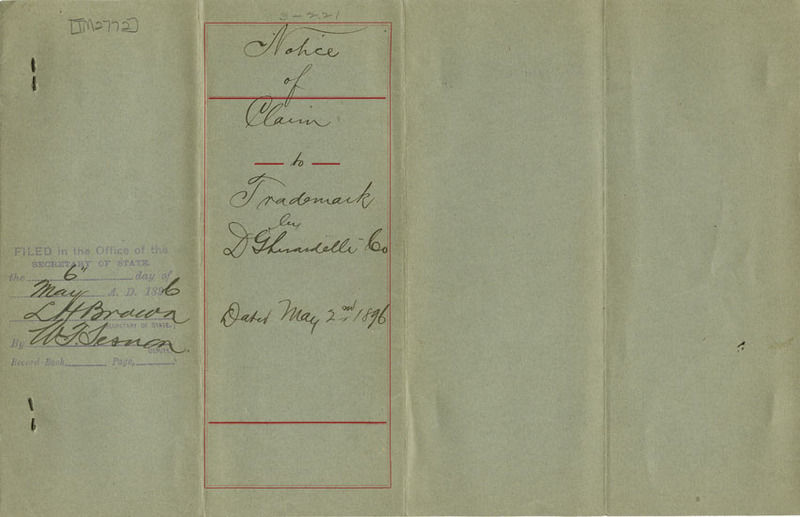 [TM2772]
3-221
Notice
of
Claim
to
Trademark
by
D Ghirardelli Co
Dated May 2nd 1896
FILED in the Office of the
SECRETARY OF STATE
the 6" day of
May A. D. 1896
L H Brown
SECRETARY OF STATE.
By W. F. Sesnon
DEPUTY.
Record Book Page,